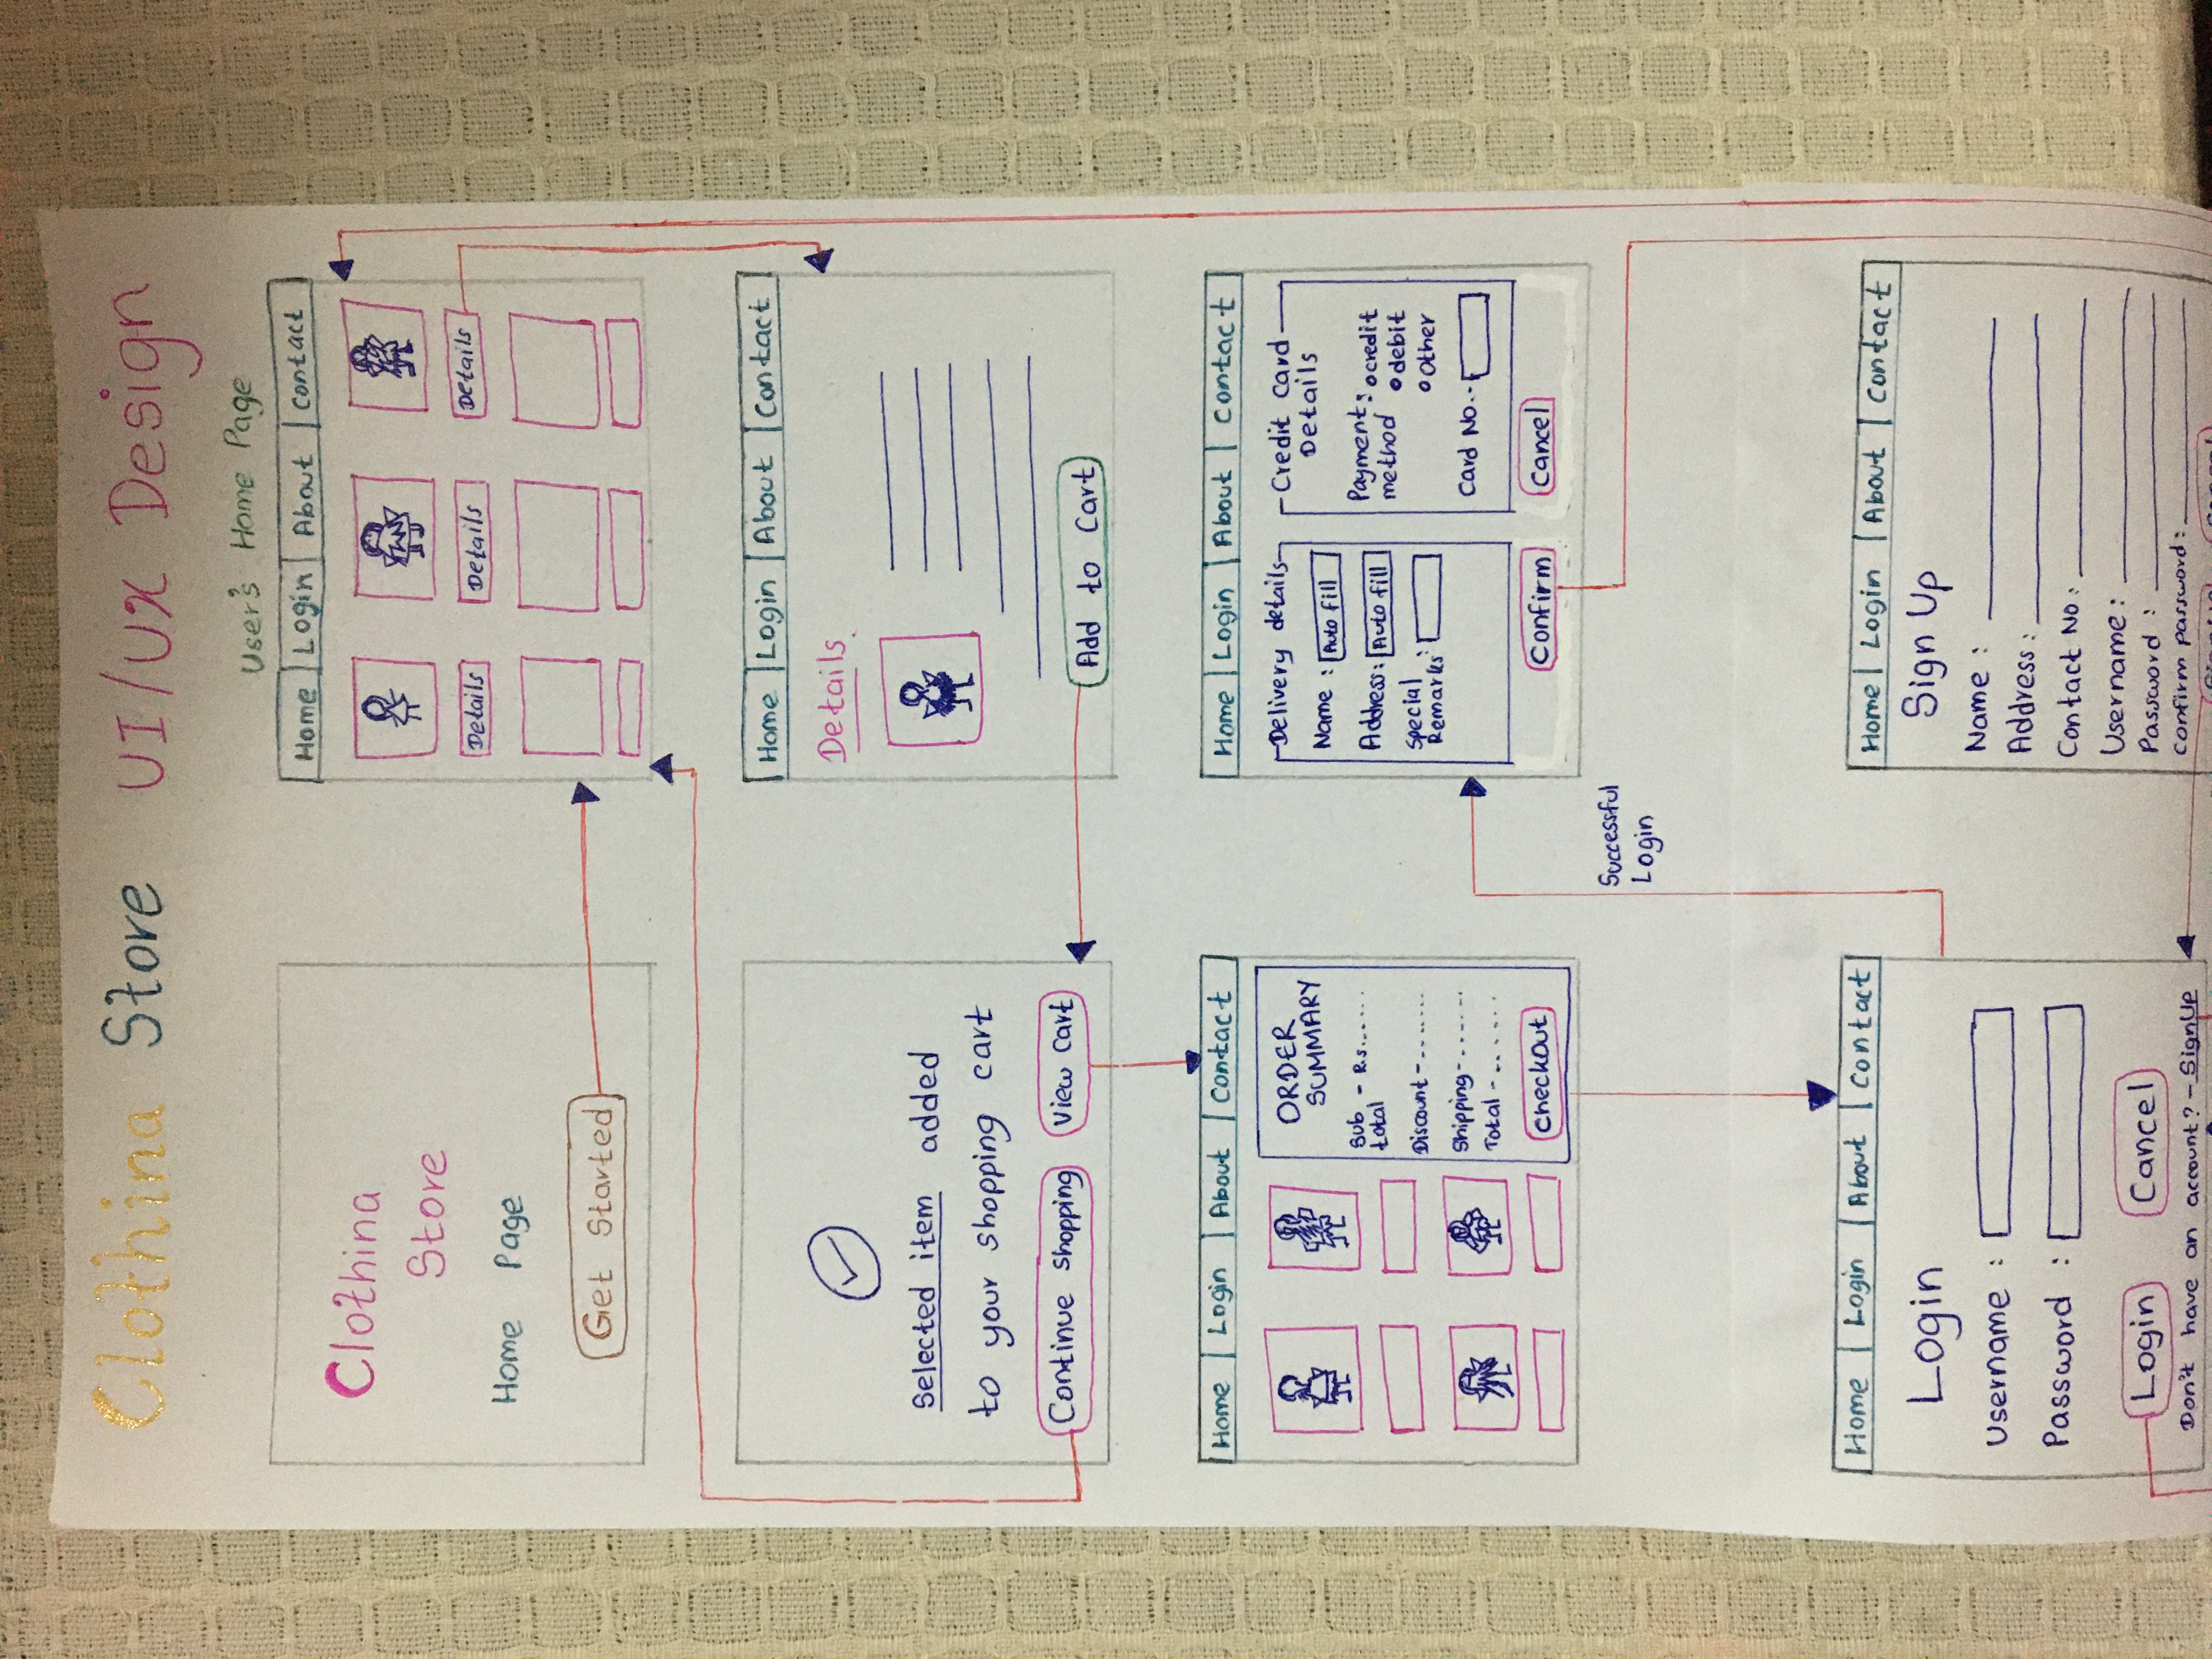 Clothina Store UI/UX Design
Clothina
Store
Home Page
Get Started
User's Home Page
Home Login About Contact
Details Details Details
Selected item added
to your shopping cart
Continue Shopping View Cart
Home Login About Contact
Details
Add to Cart
Home Login About Contact
ORDER
SUMMARY
Sub - Rs......
total
Discount-.......
Shipping-......
Total-......
CheckOut
Home Login About Contact
Delivery details
Name : Auto fill
Address: Auto fill
Special :
Remarks
Credit Card
Details
Payment: credit
method debit
Other
Card No.-
Confirm Cancel
Successful
Login
Home Login About Contact
Login
Username :
Password :
Login Cancel
Don't have an account? - SignUp
Home Login About Contact
Sign Up
Name :
Address :
Contact No :
Username :
Password :
Confirm password :